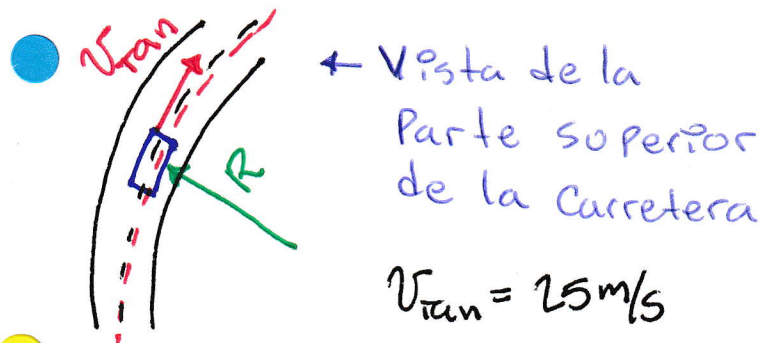 vTan
← Vista de la
Parte superior
de la Carretera
R
vTan = 25 m/s